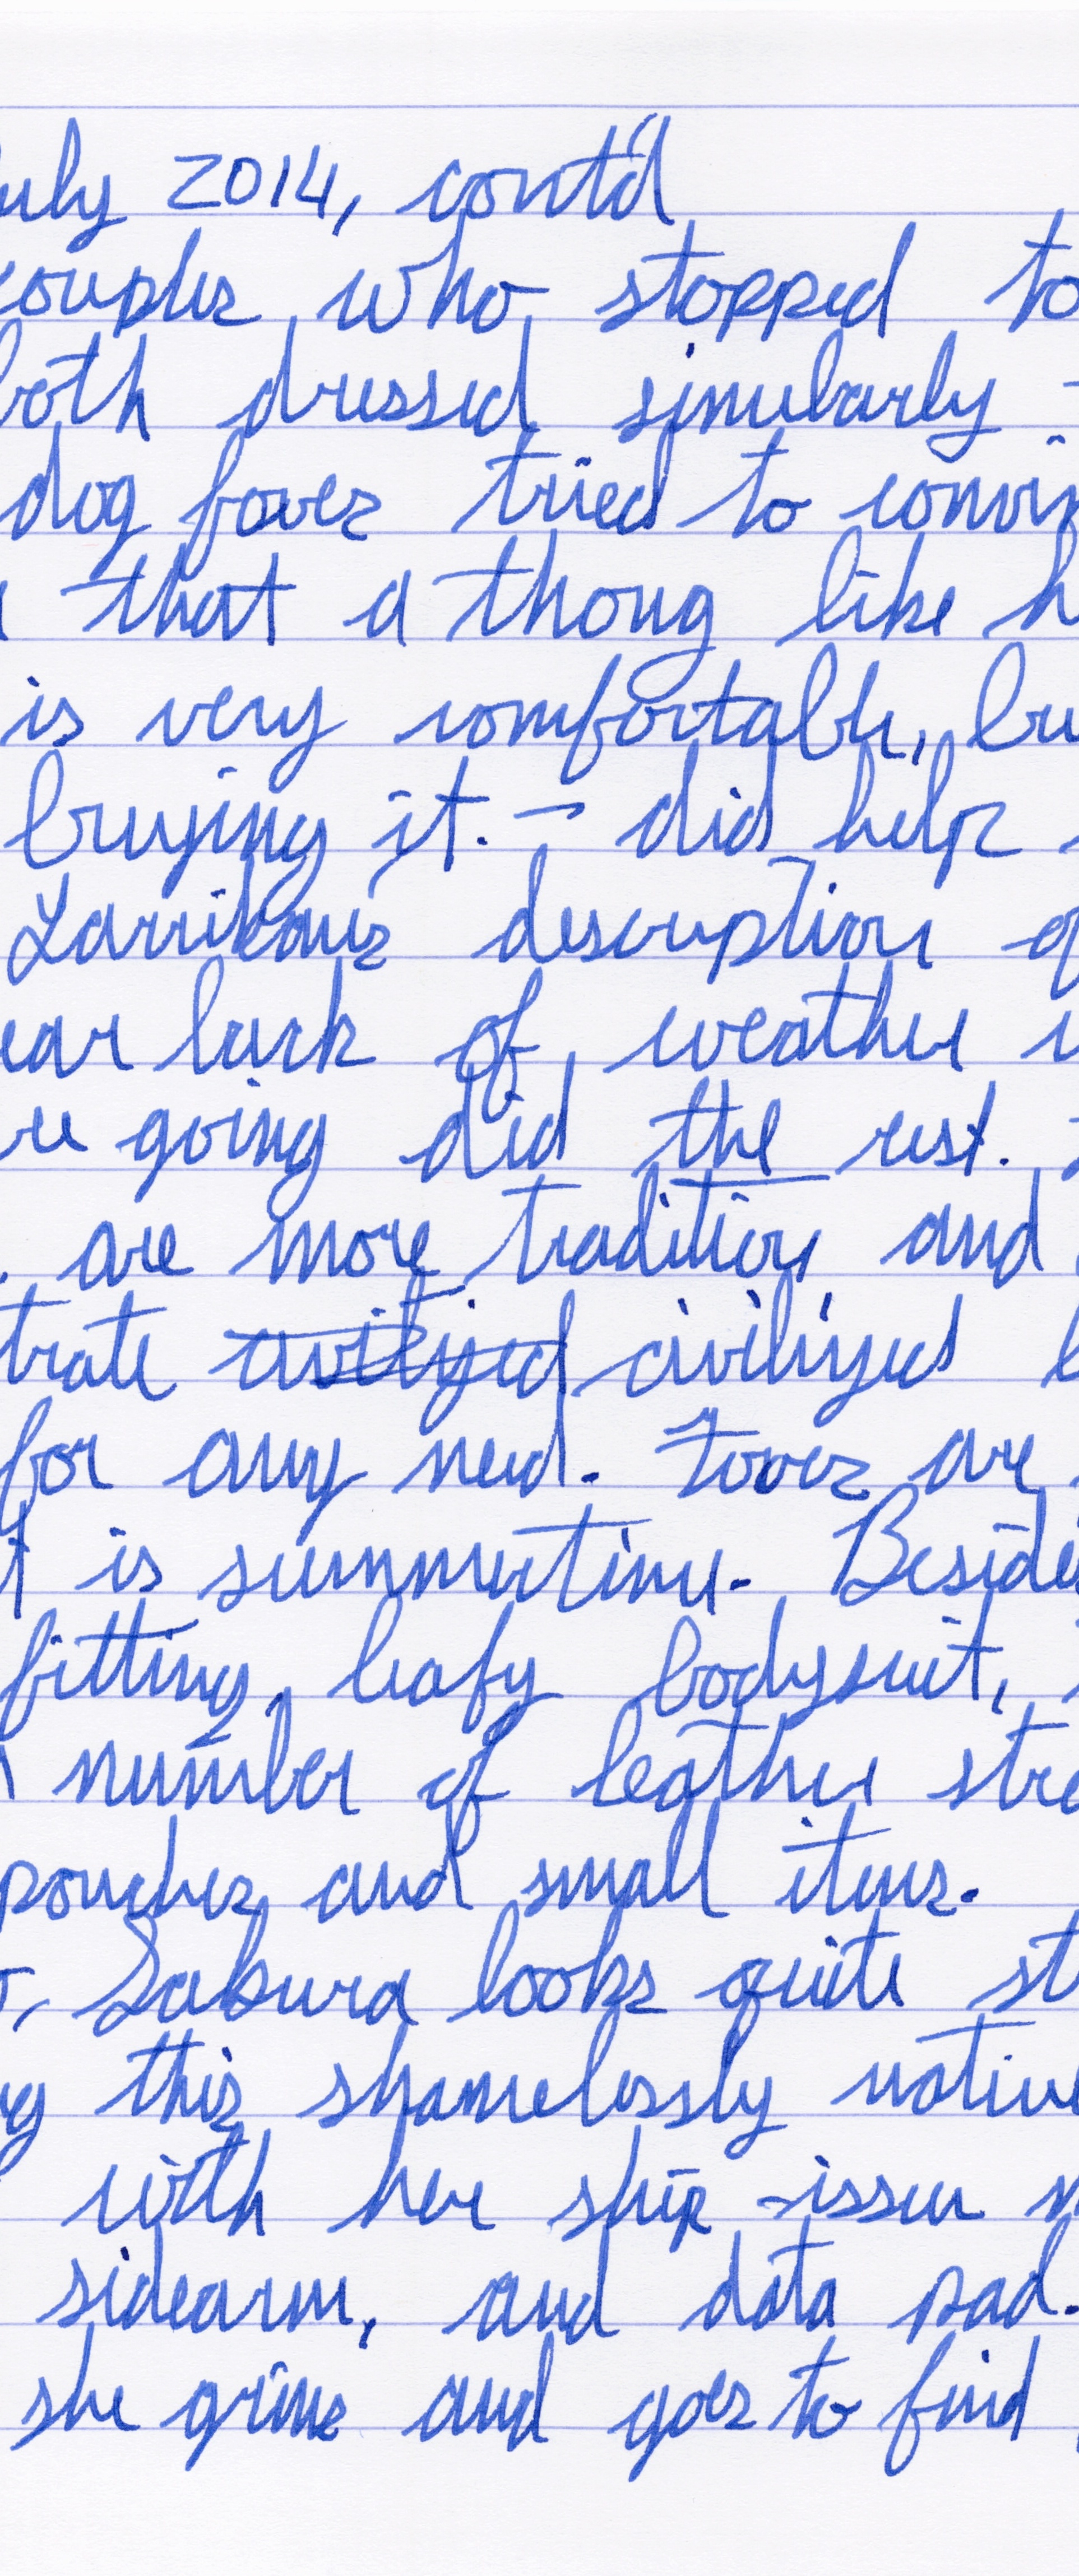 uly 2014, cont'd
couples who stopped to
both dressed similarly -
dog foxes tried to convin
that a thong like h
is very comfortable, bu
buying it. - did help
Larrikans description of
ear luck of weather w
re going did the rest.
are more tradition and
trate civilized civilized b
for any need. Foxes are
t is summertime. Beside
fitting, leafy bodysuit,
number of leather stra
pouches and small items.
o, Sakura looks quite st
ng this shamelessly native
with her ship-issue m
sidearm, and data pad.
she grins and goes to find